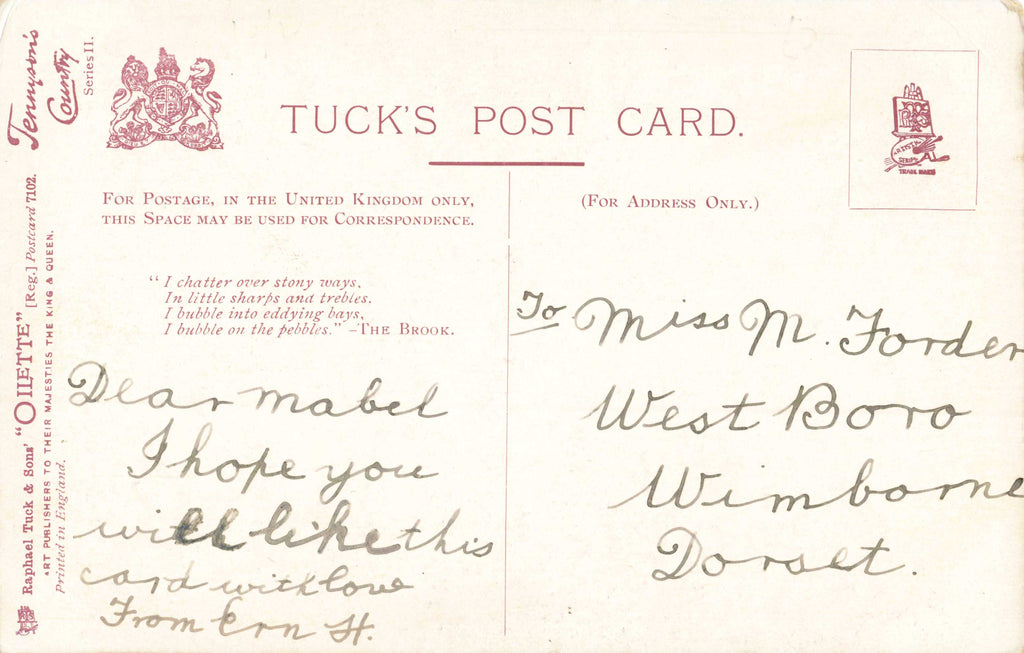 Tennyson's
Country
Series II.
TUCK'S POST CARD.
FOR POSTAGE, IN THE UNITED KINGDOM ONLY,
THIS SPACE MAY BE USED FOR CORRESPONDENCE.
(FOR ADDRESS ONLY.)
TRADE MARK
"I chatter over stony ways,
In little sharps and trebles.
I bubble into eddying bays,
I bubble on the pebbles." -THE BROOK.
Dear Mabel
I hope you
will like this
card with love
From Ern H.
To Miss M. Forder
West Boro
Wimborne
Dorset.
Raphael Tuck & Sons' "OILETTE" [Reg.] Postcard 7102.
ART PUBLISHERS TO THEIR MAJESTIES THE KING & QUEEN.
Printed in England.